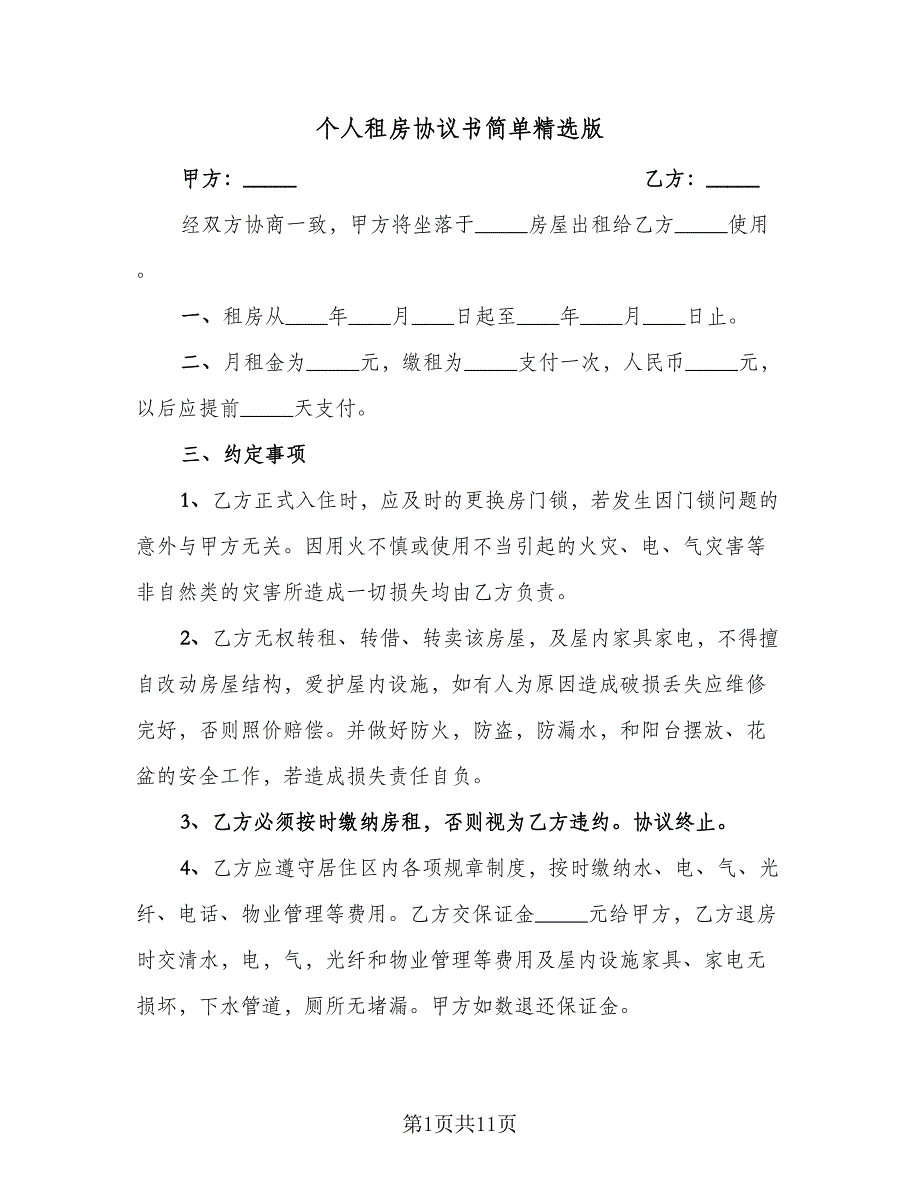 个人租房协议书简单精选版
甲方：_____ 乙方：_____
经双方协商一致，甲方将坐落于_____房屋出租给乙方_____使用
。
一、租房从____年____月____日起至____年____月____日止。
二、月租金为_____元，缴租为_____支付一次，人民币_____元，
以后应提前_____天支付。
三、约定事项
1、乙方正式入住时，应及时的更换房门锁，若发生因门锁问题的
意外与甲方无关。因用火不慎或使用不当引起的火灾、电、气灾害等
非自然类的灾害所造成一切损失均由乙方负责。
2、乙方无权转租、转借、转卖该房屋，及屋内家具家电，不得擅
自改动房屋结构，爱护屋内设施，如有人为原因造成破损丢失应维修
完好，否则照价赔偿。并做好防火，防盗，防漏水，和阳台摆放、花
盆的安全工作，若造成损失责任自负。
3、乙方必须按时缴纳房租，否则视为乙方违约。协议终止。
4、乙方应遵守居住区内各项规章制度，按时缴纳水、电、气、光
纤、电话、物业管理等费用。乙方交保证金_____元给甲方，乙方退房
时交清水，电，气，光纤和物业管理等费用及屋内设施家具、家电无
损坏，下水管道，厕所无堵漏。甲方如数退还保证金。
第1页共11页